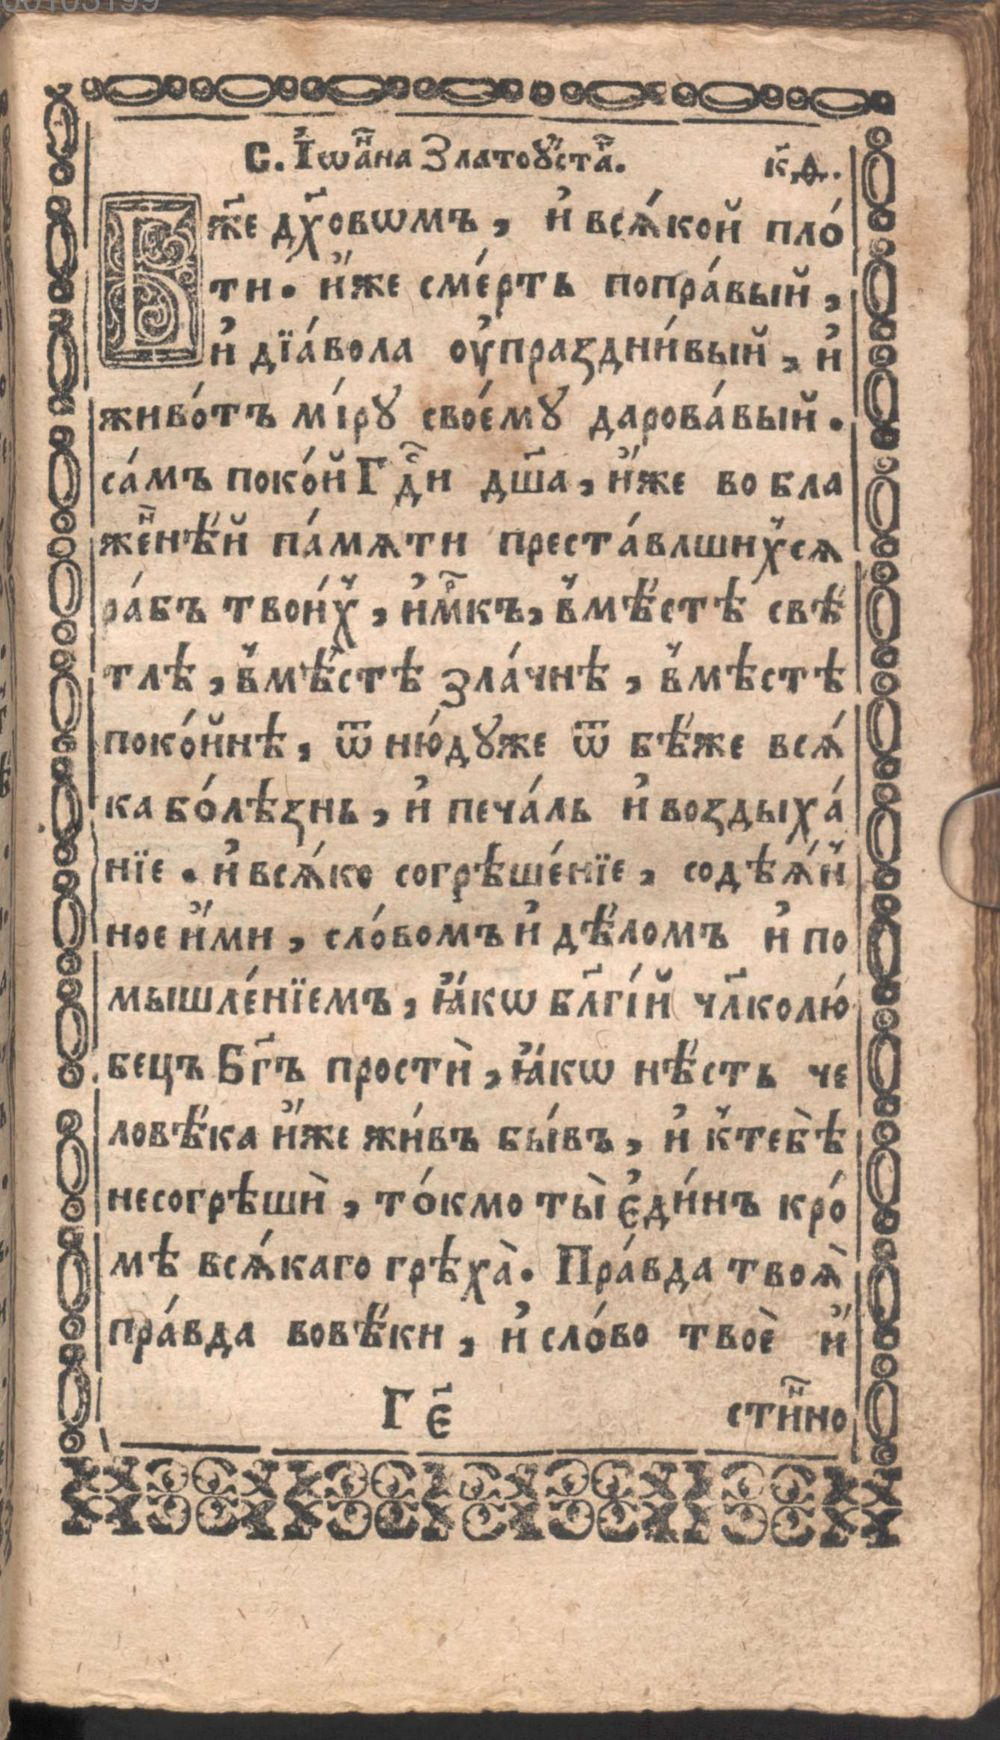 00103199
С. І҆ѡа́нⷩ҇а Златоꙋ́стаⷢ҇. к҃ѳ.
Бж҃е дх҃овѡмъ, и҆ вся́кой пло́
ти. и҆́же сме́рть попра́вый,
и҆ дїа́вола оу҆праздни́вый, и҆
живо́тъ мі́рꙋ свое́мꙋ дарова́вый.
са́мъ поко́й Гдⷭ҇и дш҃а, и҆́же во бла
же́нⷩ҇ѣй па́мѧти преста́влшихсѧ
ра́бъ твои́хъ, и҆́мⷬ҇къ, в̾мѣ́стѣ свѣ́
тлѣ, в̾мѣ́стѣ зла́чнѣ, в̾мѣстѣ
поко́йнѣ, ѿ ню́дꙋже ѿ бѣ́же всѧ́
ка бо́лѣзнь, и҆ печа́ль и҆ воздыха́
нїе. и҆ всѧ́ко согрѣше́нїе, содѣѧ́н̾
ное и҆́ми, сло́вомъ и҆ дѣ́ломъ и҆ по
мышле́нїемъ, ꙗ҆́кѡ бл҃гі́й чл҃колю́
бецъ Бг҃ъ простѝ, ꙗ҆́кѡ нѣ́сть че
ловѣ́ка и҆́же жи́въ бы́въ, и҆ к̾тебѣ̀
несогрѣшѝ, то́кмо ты̀ є҆ди́нъ кро́
мѣ всѧ́каго грѣха̀. Пра́вда твоѧ̀
пра́вда вовѣ́ки, и҆ сло́во твоѐ и҆́
Г є҃ сти́нⷩ҇о